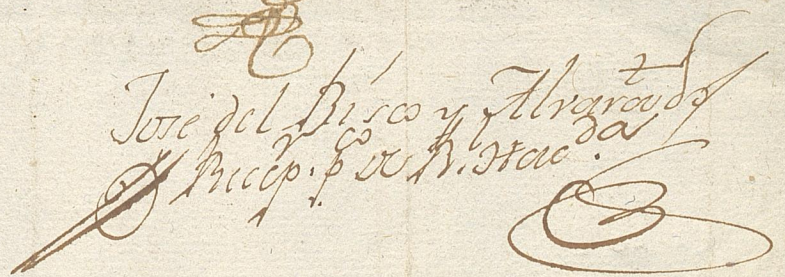 José del Risco y Alvarado
Recep.r p.co de R. Hacda.